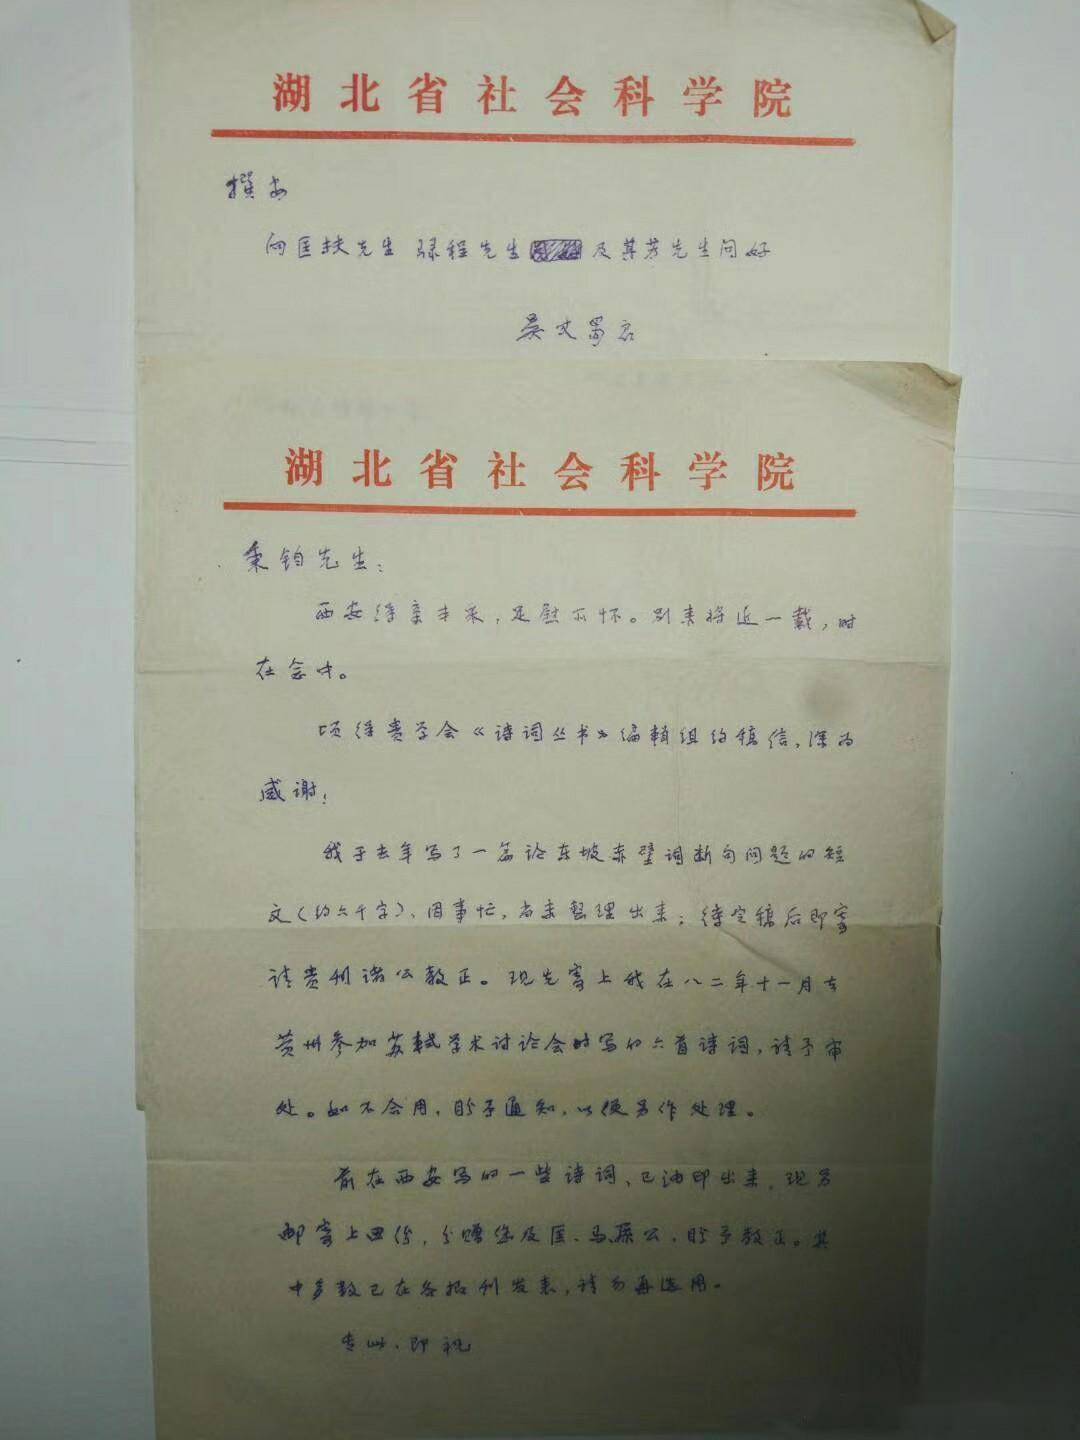 湖北省社会科学院
撰安
向匡扶先生 骕程先生 及其芳先生问好
吴丈蜀启
湖北省社会科学院
秉钧先生：
西安得亲丰采，足慰所怀。别来将近一载，时
在念中。
顷得贵学会《诗词丛书》编辑组约稿信，深为
感谢！
我于去年写了一篇论东坡赤壁词断句问题的短
文（约六千字），因事忙，尚未整理出来；待定稿后即寄
请贵刊诸公教正。现先寄上我在八二年十一月去
黄州参加苏轼学术讨论会时写的六首诗词，请予审
处。如不合用，盼予通知，以便另作处理。
前在西安写的一些诗词，已油印出来，现另
邮寄上四份，分赠您及匡、马诸公，盼予教正。其
中多数已在各报刊发表，请勿再选用。
专此，即祝